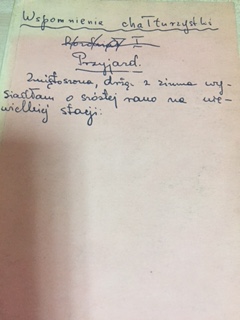 Wspomnienie chałturzystki
Rozdział I
Przyjazd.
Zmiętoszona, drżąc z zimna wy-
siadłam o szóstej rano na nie-
wielkiej stacji: